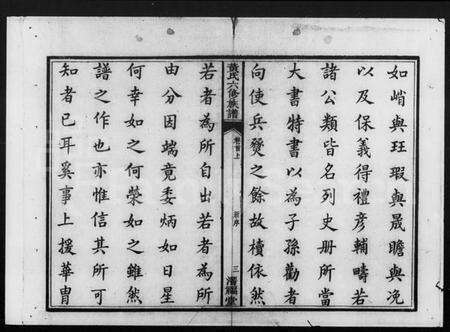 如嵋與珏瑕與晟瞻與浼
以及保義得禮彥輔疇若
諸公類皆名列史册所當
大書特書以為子孫勸者
向使兵燹之餘故櫝依然
黃氏六修族譜
卷首上
三
潘福堂
若者為所自出若者為所
由分因端竟委炳如日星
何幸如之何榮如之雖然
譜之作也亦惟信其所可
知者已耳奚事上援華胄